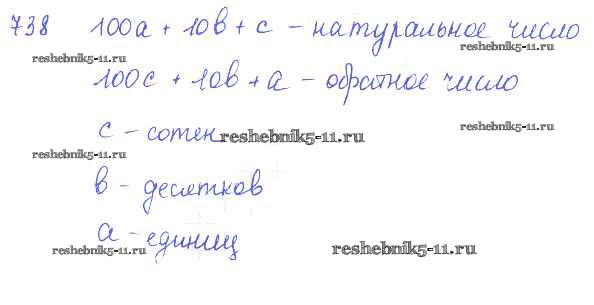 738 100а + 10в + с – натуральное число
reshebnik5-11.ru
reshebnik5-11.ru
100с + 10в + а – обратное число
с – сотен
reshebnik5-11.ru
reshebnik5-11.ru
reshebnik5-11.ru
в – десятков
а – единиц
reshebnik5-11.ru
reshebnik5-11.ru